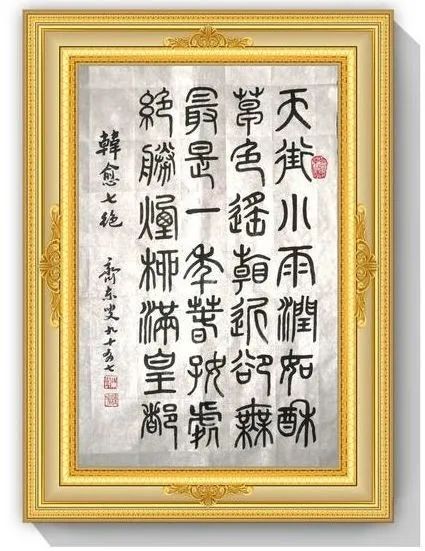 天街小雨潤如酥
草色遙看近卻無
最是一年春好處
絕勝煙柳滿皇都
韓愈七絕
齊東叟九十七